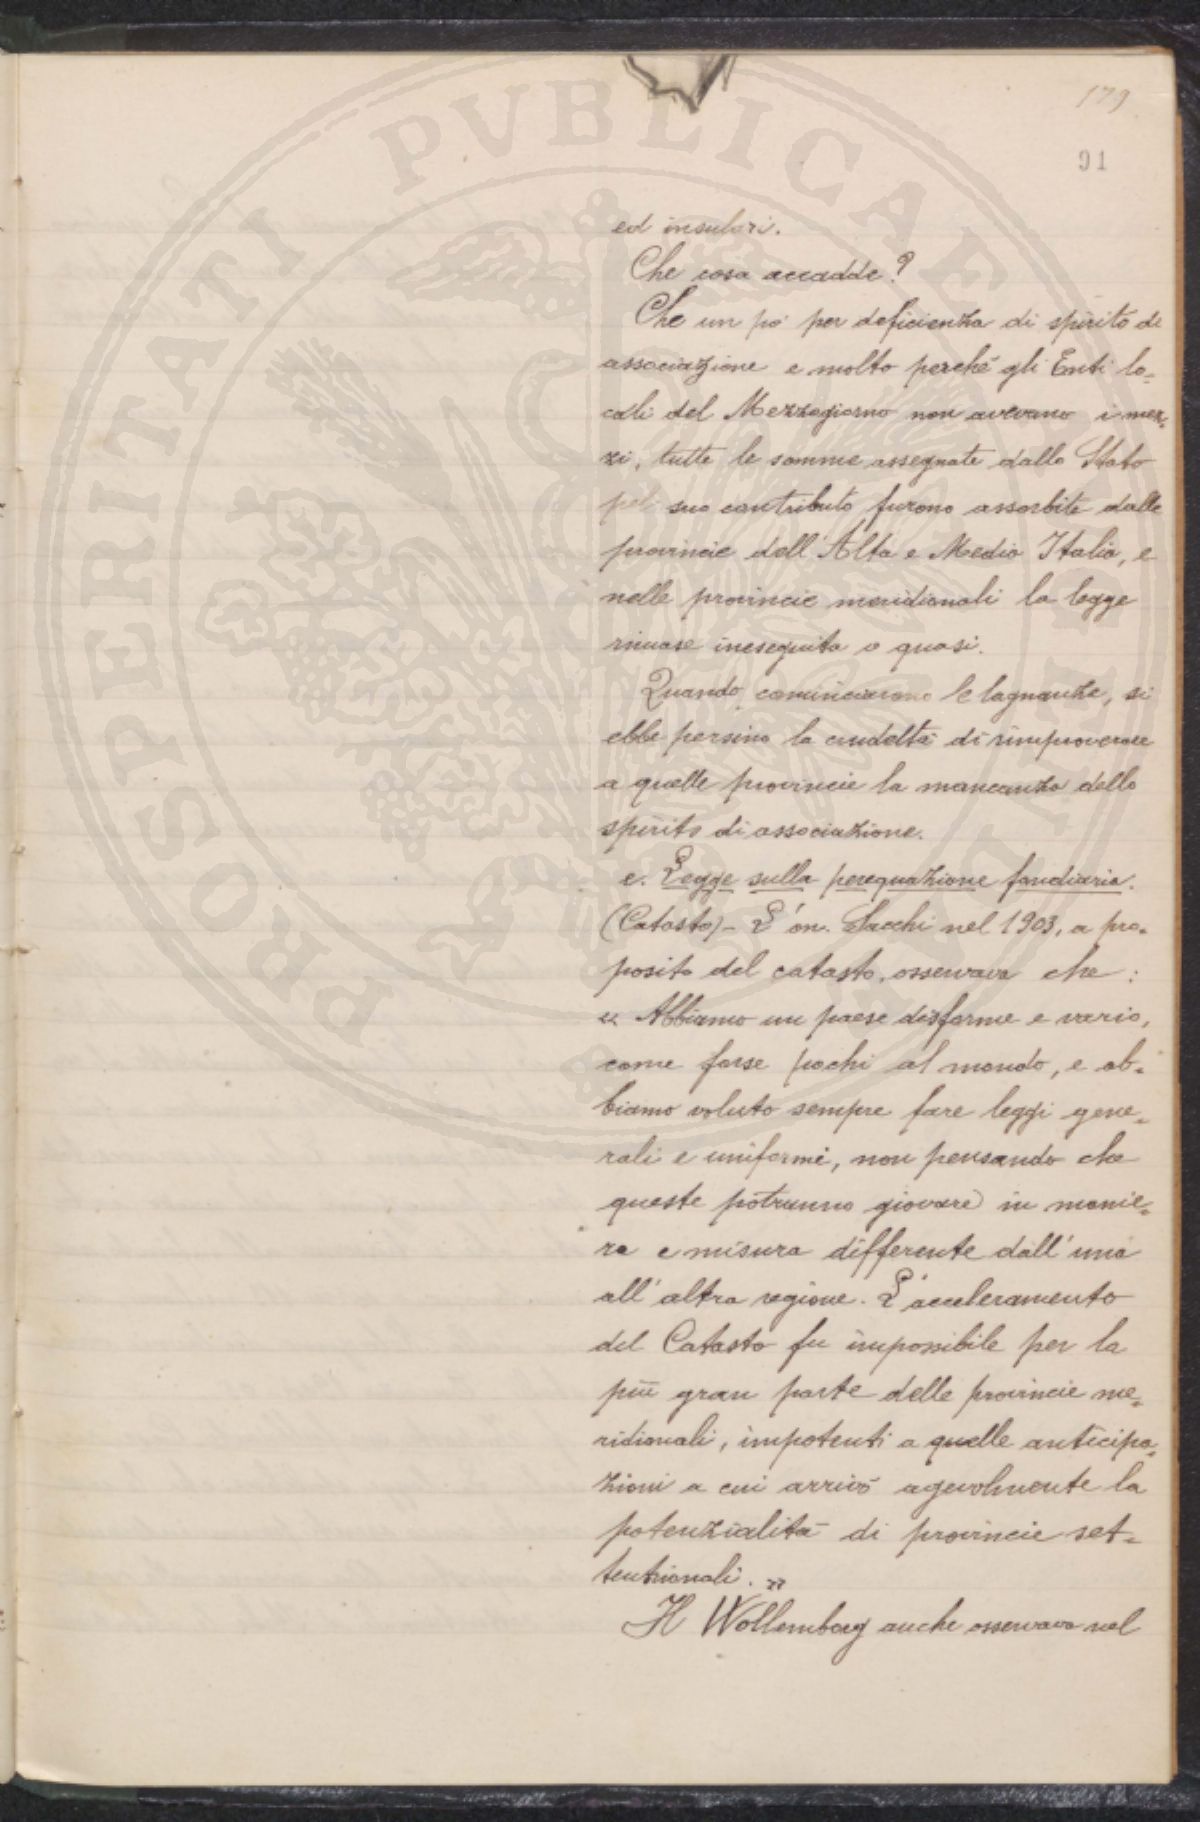 179
91
ed insulari.
Che cosa accadde?
Che un po' per deficienza di spirito di
associazione e molto perchè gli Enti lo-
cali del Mezzogiorno non avevano i mez-
zi, tutte le somme assegnate dallo Stato
pel suo contributo furono assorbite dalle
provincie dell'Alta e Media Italia, e
nelle provincie meridionali la legge
rimase ineseguita o quasi.
Quando cominciarono le lagnanze, si
ebbe persino la crudeltà di rimproverare
a quelle provincie la mancanza dello
spirito di associazione.
e. Legge sulla perequazione fondiaria.
(Catasto) - L'on. Sacchi nel 1903, a pro-
posito del catasto, osservava che:
« Abbiamo un paese disforme e vario,
come forse pochi al mondo, e ab-
biamo voluto sempre fare leggi gene-
rali e uniformi, non pensando che
queste potranno giovare in manie-
ra e misura differente dall'una
all'altra regione. L'acceleramento
del Catasto fu impossibile per la
più gran parte delle provincie me-
ridionali, impotenti a quelle anticipa-
zioni a cui arrivò agevolmente la
potenzialità di provincie set-
tentrionali. »
Il Wollemborg anche osservava nel
PROSPERITATI PVBLICAE